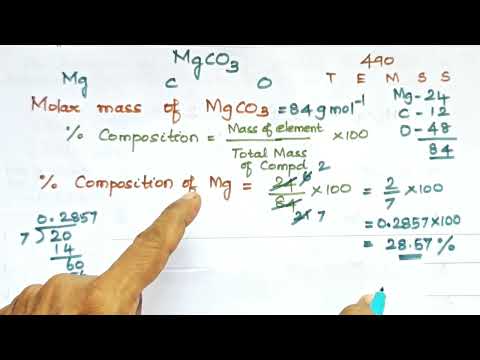 MgCO3
490
Mg C O
T E M S S
Molar mass of MgCO3 = 84 g mol-1
Mg - 24
C - 12
O - 48
84
% Composition = Mass of element / Total Mass of Compd × 100
% Composition of Mg = 24 6 2 / 84 21 7 × 100 = 2/7 × 100
= 0.2857 × 100
= 28.57 %
0.2857
7 ) 20
14
60